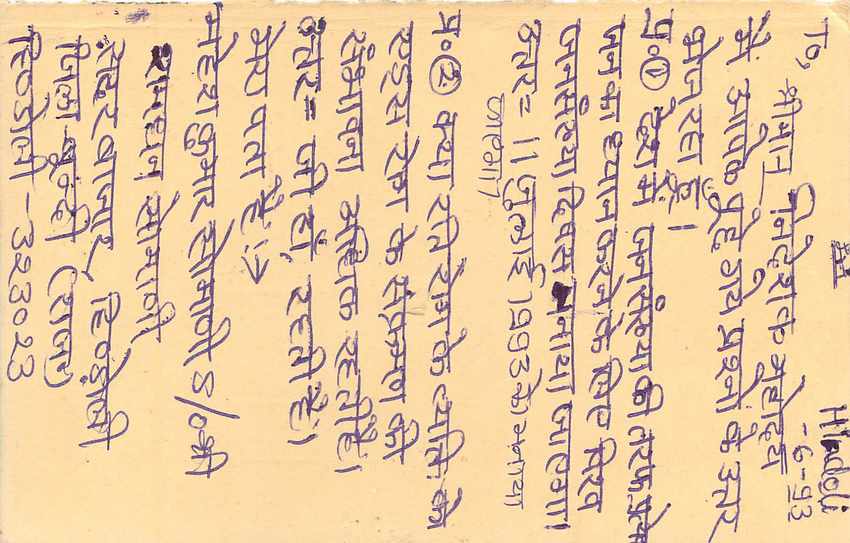 Hindoli
-6-93
To, श्रीमान निदेशक महोदय
मैं आपके पुछे गये प्रश्नो के उत्तर
भेज रहा हूँ।
प्र॰① देश में जनसंख्या की तरफ
जन का ध्यान करने के लिए विश्व
जनसंख्या दिवस मनाया जाएगा।
उत्तर= 11 जुलाई 1993 को मनाया
जाएगा
प्र॰② क्या रति रोग के व्यक्ति को
एड्स रोग के संक्रमण की
संभावना अधिक रहती है।
उत्तर= जी हाँ, रहती है।
मेरा पता है:→
महेश कुमार सोमाणी S/० श्री
रामधन सोमाणी
सदर बाजार, हिण्डोली
जिला-बून्दी (राज॰)
हिण्डोली -323023